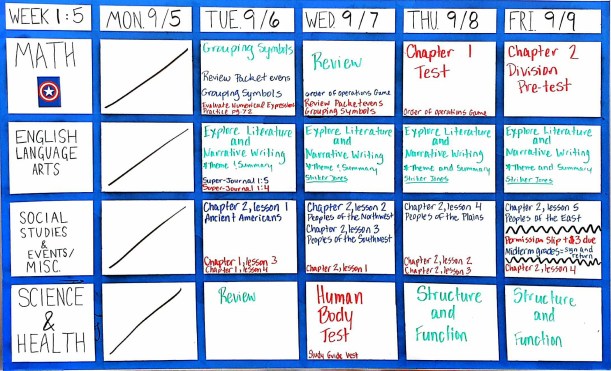 WEEK 1:5
MON. 9/5
TUE. 9/6
WED. 9/7
THU. 9/8
FRI. 9/9
MATH
Grouping Symbols
Review Packet evens
Grouping Symbols
Evaluate Numerical Expressions
Practice pg. 72
Review
Order of Operations Game
Review Packet evens
Grouping Symbols
Chapter 1
Test
Order of Operations Game
Chapter 2
Division
Pre-test
ENGLISH
LANGUAGE
ARTS
Explore Literature
and
Narrative Writing
*Theme & Summary
Super-Journal 1:5
Super-Journal 1:4
Explore Literature
and
Narrative Writing
*Theme & Summary
Striker Jones
Explore Literature
and
Narrative Writing
*Theme and Summary
Striker Jones
Explore Literature
and
Narrative Writing
*Theme and Summary
Striker Jones
SOCIAL
STUDIES
&
EVENTS/
MISC.
Chapter 2, lesson 1
Ancient Americans
Chapter 1, lesson 3
Chapter 1, lesson 4
Chapter 2, lesson 2
Peoples of the Northwest
Chapter 2, lesson 3
Peoples of the Southwest
Chapter 2, lesson 1
Chapter 2, lesson 4
Peoples of the Plains
Chapter 2, lesson 2
Chapter 2, lesson 3
Chapter 2, lesson 5
Peoples of the East
Permission Slip + $3 due
Midterm grades= sign and
return
Chapter 2, lesson 4
SCIENCE
&
HEALTH
Review
Human
Body
Test
Study Guide
Structure
and
Function
Structure
and
Function